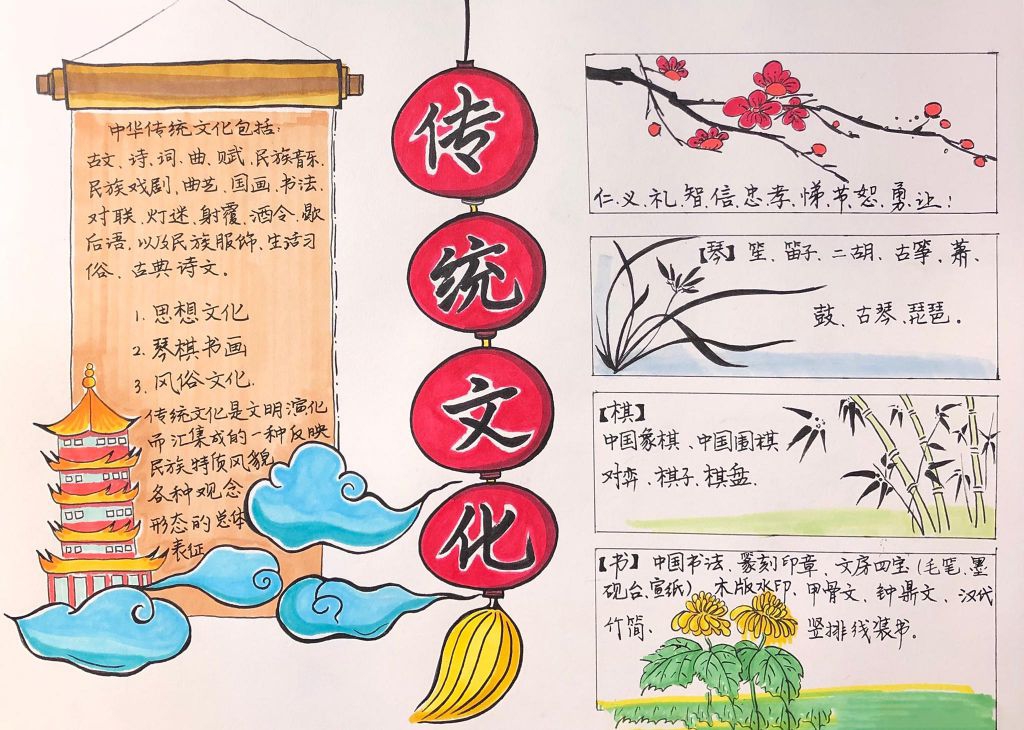 中华传统文化包括:
古文、诗、词、曲、赋、民族音乐、
民族戏剧、曲艺、国画、书法、
对联、灯迷、射覆、酒令、歇
后语,以及民族服饰、生活习
俗、古典诗文。
1. 思想文化
2. 琴棋书画
3. 风俗文化.
传统文化是文明演化
而汇集成的一种反映
民族特质风貌
各种观念
形态的总体
表征
传
统
文
化
仁、义、礼、智、信、忠、孝、悌、节、恕、勇、让!
【琴】笙、笛子、二胡、古筝、萧、
鼓、古琴、琵琶。
【棋】
中国象棋、中国围棋
对弈、棋子、棋盘.
【书】中国书法、篆刻印章、文房四宝(毛笔、墨
砚台、宣纸)、木版水印、甲骨文、钟鼎文、汉代
竹简、竖排线装书。